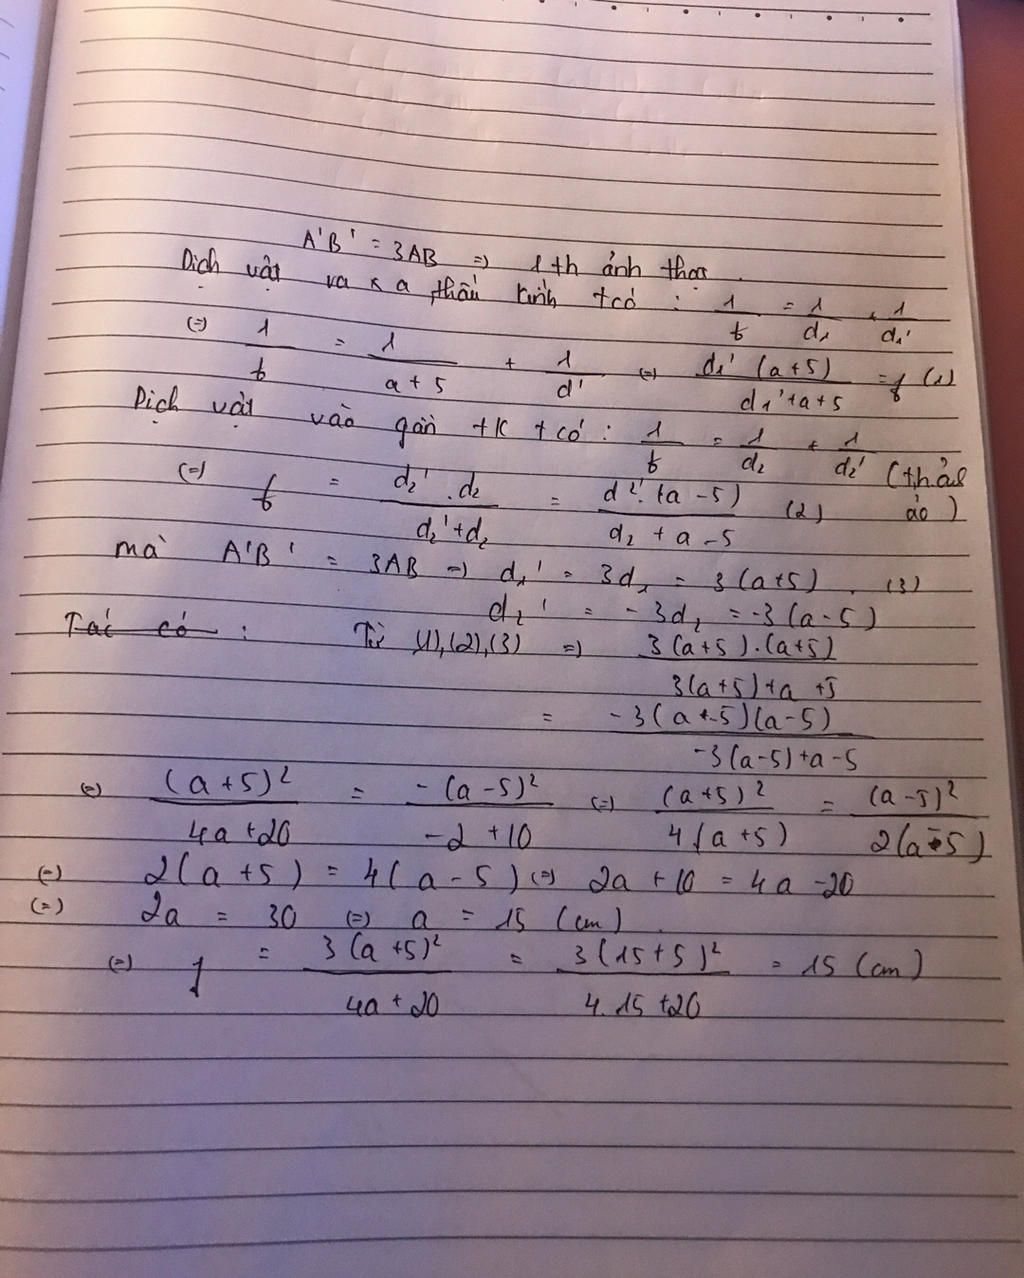 A'B' = 3AB => 1 th ảnh thật.
Dịch vật ra xa thấu kính tcó : 1/f = 1/d₁ + 1/d₁'
(=) 1/f = 1/(a + 5) + 1/d' (=) d₁'(a+5)/(d₁'+a+5) = f (1)
Dịch vật vào gần tK tcó : 1/f = 1/d₂ + 1/d₂' (thảo
(=) f = d₂'.d₂/(d₂'+d₂) = d₂'.(a-5)/(d₂ + a - 5) (2) ảo)
mà A'B' = 3AB => d₁' = 3d₁ = 3(a+5). (3)
d₂' = -3d₂ = -3(a-5)
Tác có : Từ (1),(2),(3) => 3(a+5).(a+5)/(3(a+5)+a+5)
= -3(a-5)(a-5)/(-3(a-5)+a-5)
(=) (a+5)²/(4a+20) = -(a-5)²/(-2+10) (=) (a+5)²/4(a+5) = (a-5)²/2(a-5)
(=) 2(a+5) = 4(a-5) (=) 2a + 10 = 4a - 20
(=) 2a = 30 (=) a = 15 (cm).
(=) f = 3(a+5)²/(4a+20) = 3(15+5)²/(4.15+20) = 15 (cm)